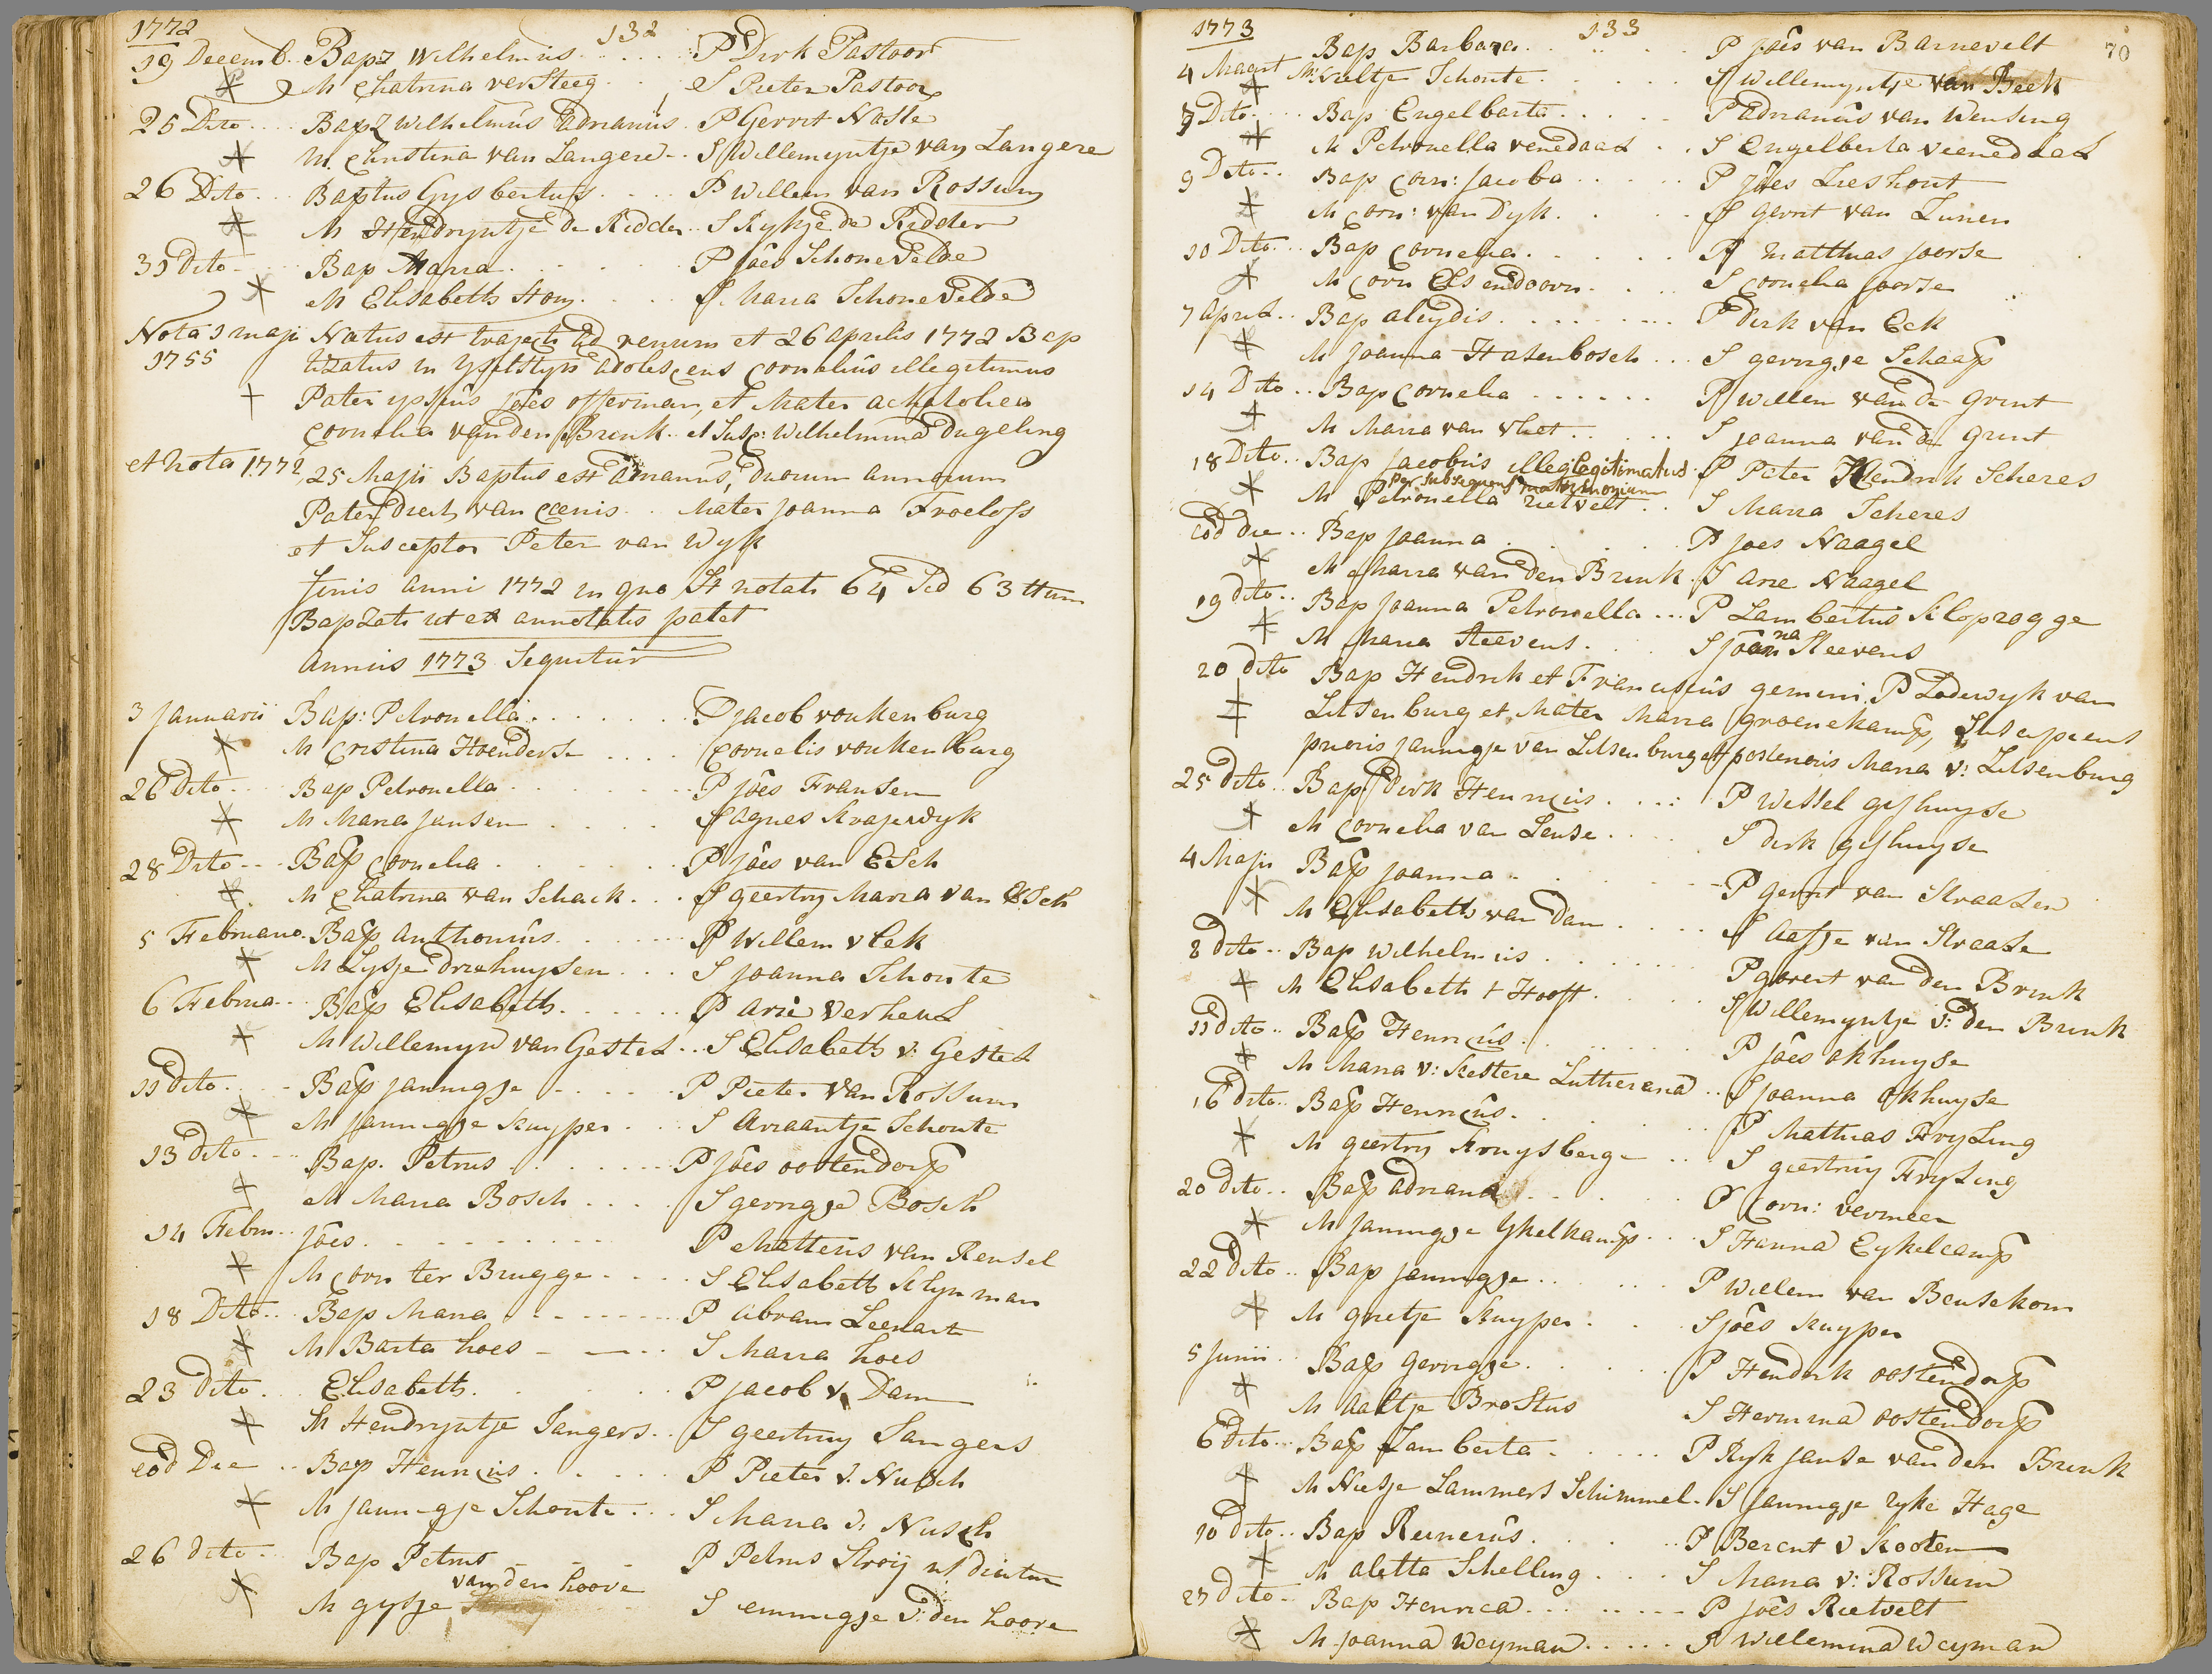 1772
132
19 Decemb. Bapz Wilhelmus P Dirk Pastoor
M Chatrina verSteeg S Pieter Pastoor
25 Dito Bapz Wilhelmus Adrianus P Gerrit Nasle
M. Christina van Langere S Willemyntje van Langere
26 Dito Baptus Gysbertus P Willem van Rossum
M Hendryntje de Ridder S Rykje de Ridder
31 dito Bap Maria P Joes Schonevelde
M Elisabeth Hom S. Maria Schonevelde
Nota 1 maji Natus est trajecti ad renum et 26 aprilis 1772 Bap
1755 tizatus in yselstyn adolescens Cornelius illegitimus
Pater ipsius Joes offerman, et Mater acatholica
Cornelia van den Brink et Susc: Wilhelmina Dugeling
et nota 1772, 25 Maji Baptus est Adrianus, duorum annorum
Pater Diert van Coenis Mater Joanna Froelofs
et Susceptor Peter van Wyk
finis anni 1772 in quo St notati 64 Sed 63 ttum
Bapzati ut ex annotatis patet
Annus 1773 Sequitur
3 Januarii Bap: Petronella P Jacob vonkenburg
M Cristina Hoenderse Cornelis vonkenburg
26 dito Bap Petronella P Joes Fransen
M Maria Jansen S Agnes Kragewyk
28 Dito Bap Cornelia P Joes van Esch
M Chatrina van Schaek S geertruy Maria van Esch
5 Februario Bap Anthonius P Willem vlek
M Lysje driehuysen S Joanna Schonte
6 Februa Bap Elisabeth P Arie Verheul
M Willemyn van Gestel S Elisabeth v: Gestel
11 dito Bap Jannigje P Pieter van Rossum
M Jannigje Kuyper S Ariaantje Schonte
13 dito Bap. Petrus P Joes oostendorp
M Maria Bosch S gerrigje Bosch
14 Febru Joes P Matteus van Rensel
M Corn ter Brugge S Elisabeth Klynman
18 Dito Bap Maria P Abram Leenart
M Barta hoes S Maria hoes
23 dito Elisabeth P Jacob v. Dam
M Hendryntje Sangers S geertruy Sangers
eod Die Bap Henricus P Pieter v. Nusch
M Jannigje Schonte S Maria v: Nusch
26 dito Bap Petrus P Petrus Strooij ut dicitur
van den hoove
M gysje S emmigje v: den hoove
1773
133
70
4 Maart Bap Barbara P Joes van Barnevelt
M: Neeltje Schonte S Willemyntje van Beek
7 Dito Bap Engelbarta P Adrianus van Wensing
M Petronella venedaal S Engelberta veenedaal
9 Dito Bap Corn: Jacoba P Joes Lieshout
M Corn: van Dyk S gerrit van Lunen
10 Dito Bap Cornelia P Matthias Joorse
M Corn Elsendoorn S Cornelia Joorse
7 April Bap aleydis P Dirk van Eck
M Joanna Hasenbosch S gerrigje Schaap
14 Dito Bap Cornelia P Willem van de Grint
M Maria van Vliet S Joanna van de Grint
18 Dito Bap Jacobus illeglegitimatus P Peter Hendrik Scheres
per Subsequens matrimonium
M Petronella rietvelt S Maria Scheres
eod die Bap Joanna P Joes Naagel
M Maria van den Brink S Arie Naagel
19 dito Bap Joanna Petronella P Lambertus Kloprogge
M Maria Steevens S Joanna Steevens
20 dito Bap Hendrik et Franciscus gemini. P Lodewyk van
Litsenburg et Mater Maria groenekamp, Suscipiens
prioris Jannigje van Litsenburg et posterioris Maria v: Litsenburg
25 dito Bap Dirk Henricus P Wessel gishuyse
M Cornelia van Leuse S dirk gishuyse
4 Maji Bap Joanna P gerrit van Straaten
M Elisabeth van Dam S Aafje van Straate
8 dito Bap Wilhelmus P govert van den Brink
M Elisabeth t Hooft S Willemyntje v: den Brink
11 dito Bap Henricus P Joes okhuyse
M Maria v: Kestere Lutherana S Joanna Okhuyse
16 dito Bap Henricus P Mathias Fryling
M geertruy Kruysberge S geertruy Fryling
20 dito Bap Adriana P Corn: vermeer
M Jannigje Ykelkamp S Hanna Eykelcamp
22 dito Bap Jannigje P Willem van Beusekom
M grietje Kuyper S Joes Kuyper
5 Junii Bap Gerrigje P Hendrik oostendorp
M Aaltje Brostus S Hermina oostendorp
6 dito Bap Lamberta P Ryk Janse van den Brink
M Niesje Lammers Schimmel S Jannigje ryke Hage
10 dito Bap Reinerus P Berent v Kooten
M aletta Schelling S Maria v: Rossum
27 dito Bap Henrica P Joes Rietvelt
M Joanna Weyman S Willemina Weyman